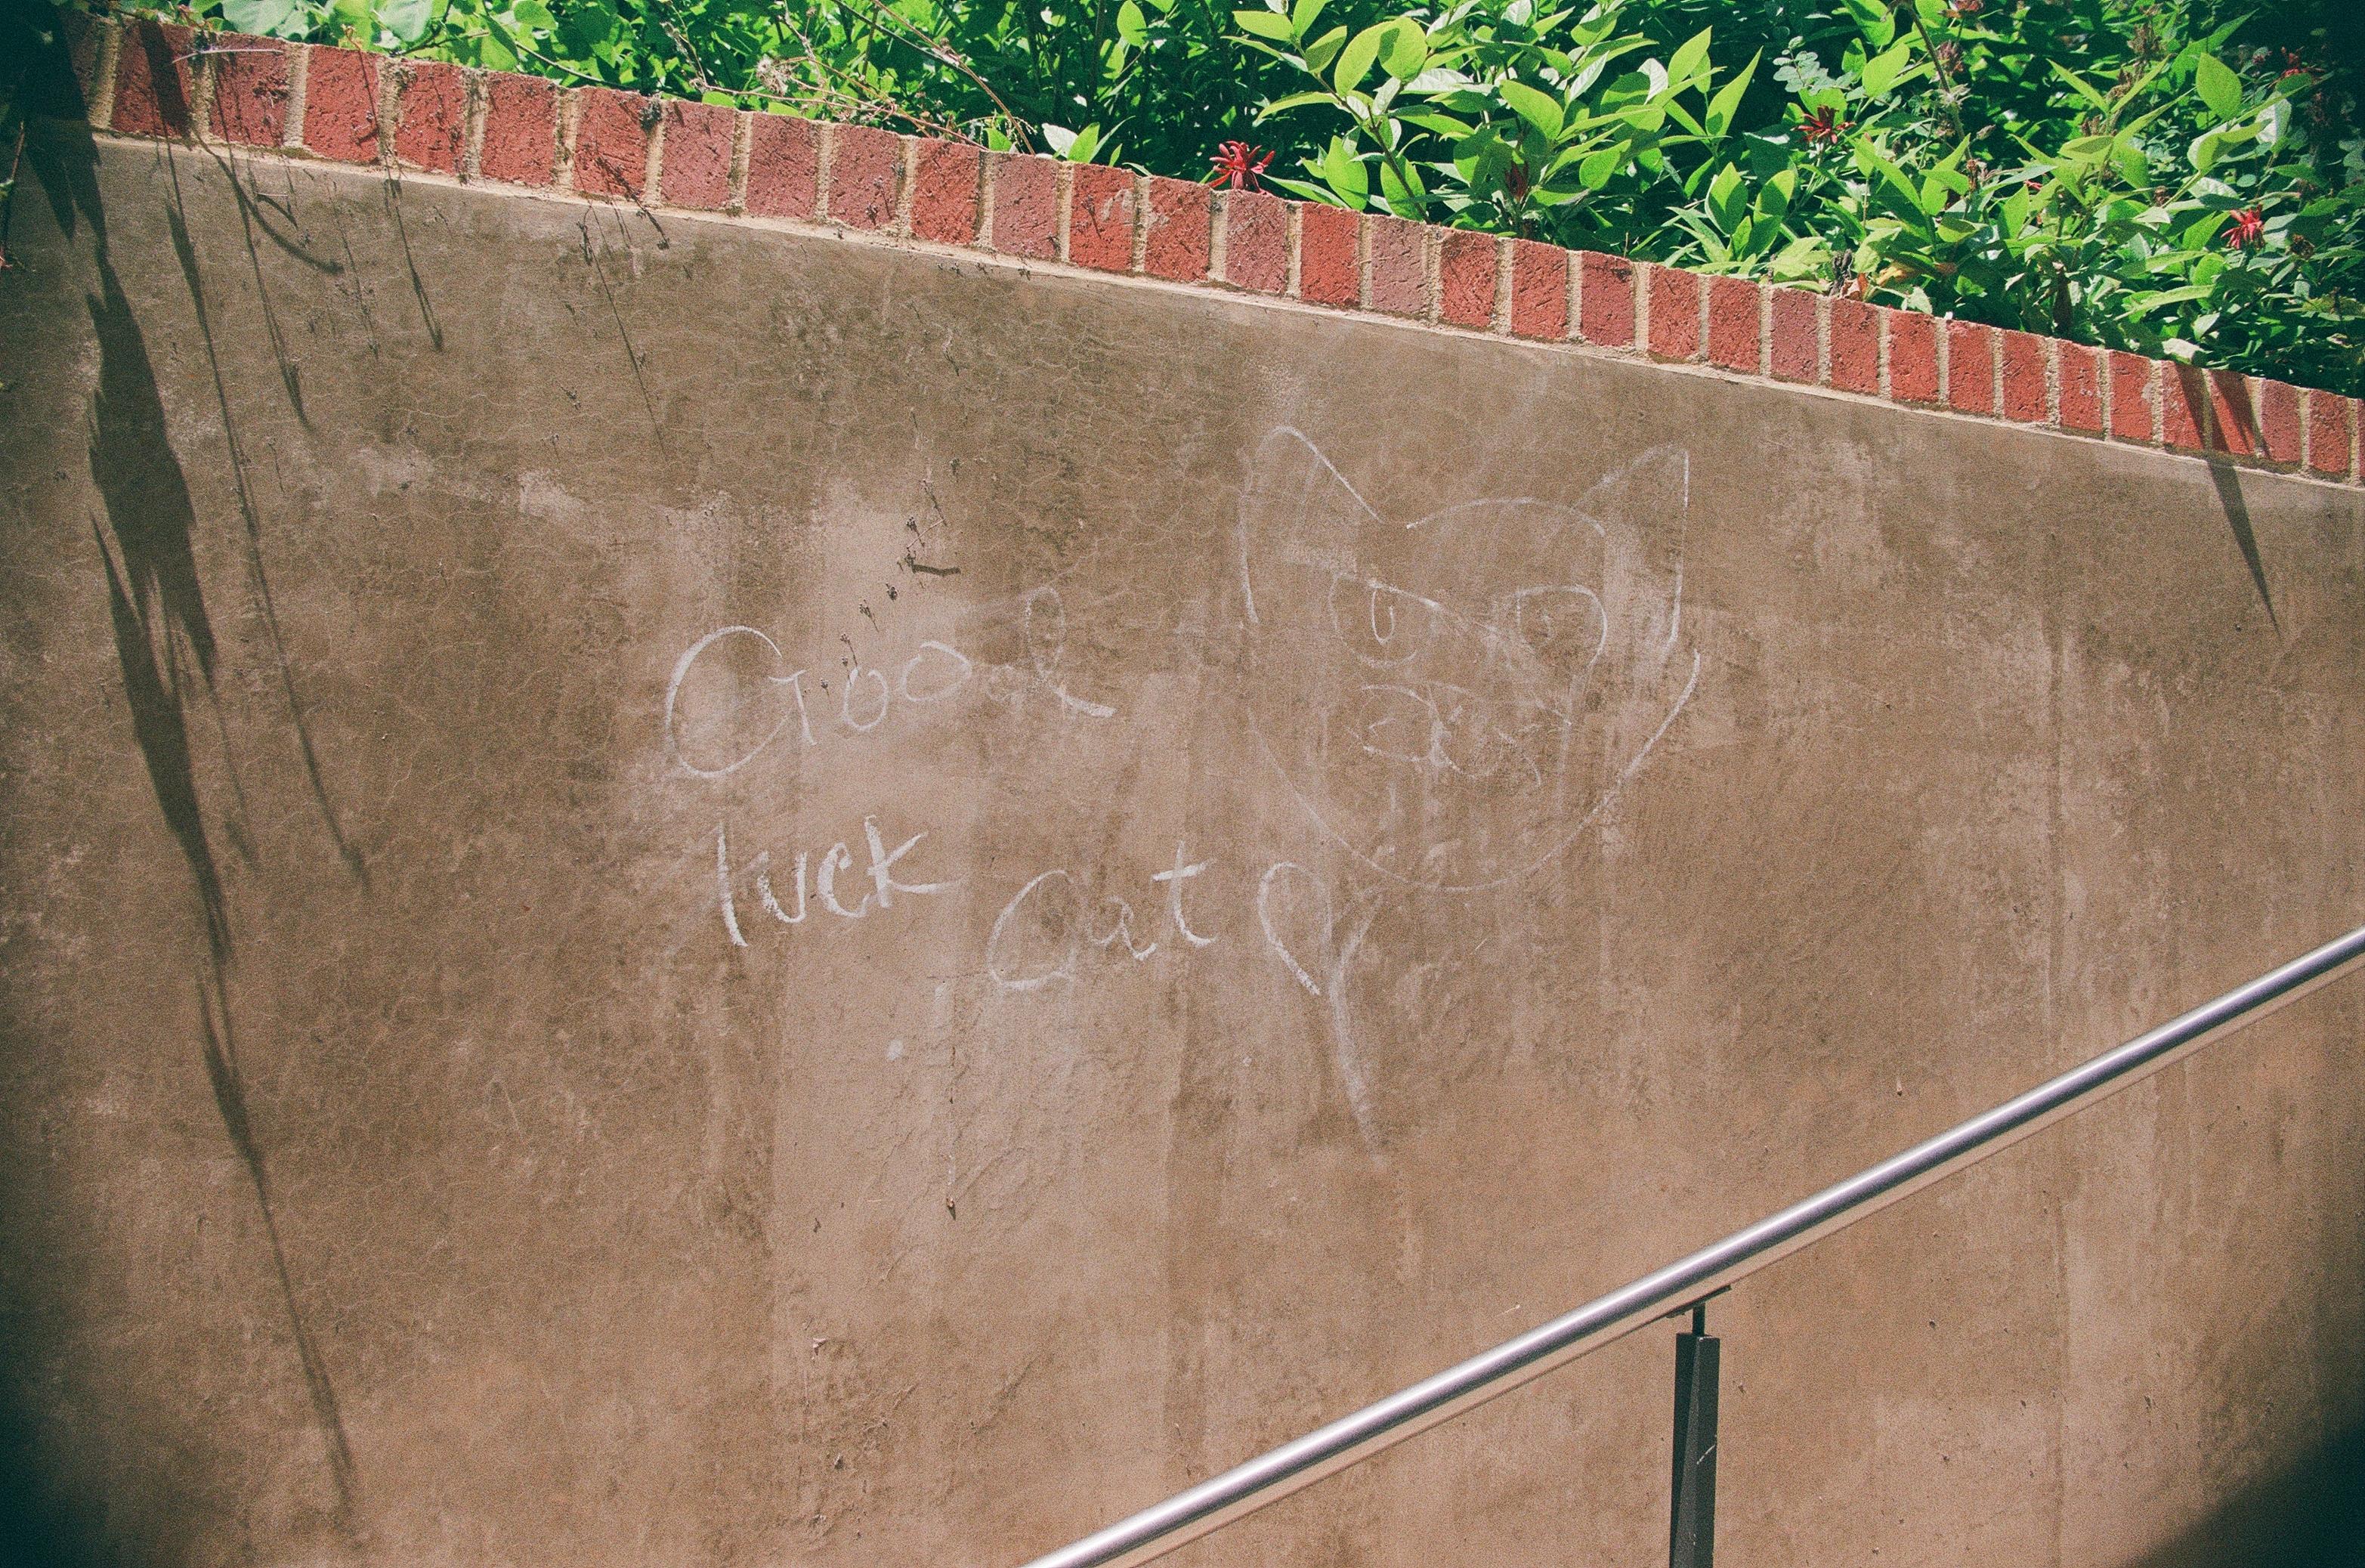 Good
luck Cat